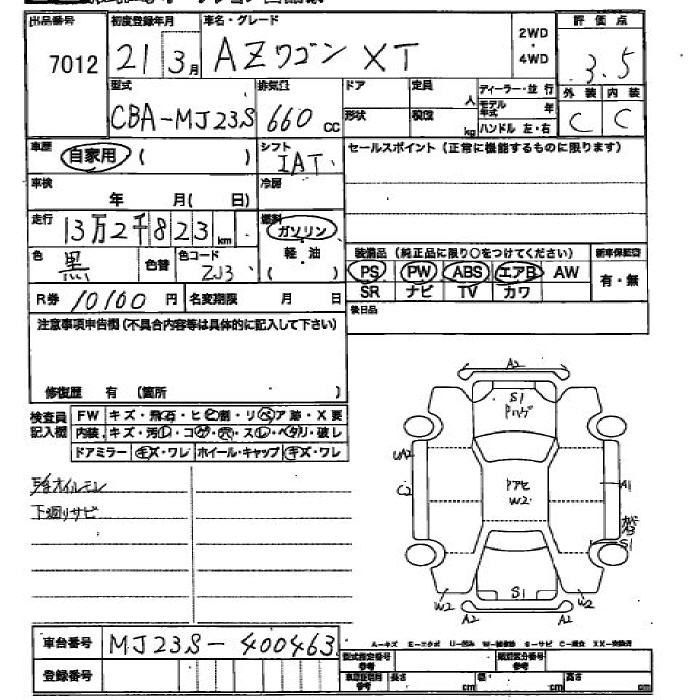 出品番号 初度登録年月 車名・グレード 2WD・4WD 評価点
7012 21 3月 AZワゴン XT 3.5
型式 排気量 ドア 定員 人 ディーラー・並行 外装 内装
CBA-MJ23S 660 cc 形状 積段 kg モデル年式 年 C C
ハンドル 左・右
車歴 自家用 ( ) シフト IAT セールスポイント (正常に機能するものに限ります)
車検 年 月( 日) 冷房
走行 13万2千823km 燃料 ガソリン
軽油
色 黒 色替 色コード ZJ3 ( )
装備品 (純正品に限り○をつけてください) 新車保証書
PS PW ABS エアB AW 有・無
SR ナビ TV カワ
R券 10100円 名変期限 月 日
後日品
注意事項申告欄(不具合内容等は具体的に記入して下さい)
修復歴 有 (箇所 )
検査員記入欄 FW キズ・飛石・ヒビ割・リペア跡・X要
内装 キズ・汚レ・コゲ・穴・スレ・ベタリ・破レ
ドアミラー キズ・ワレ ホイール・キャップ キズ・ワレ
オイルモレ
下廻りサビ
A2
S1
Pハゲ
UA2
C2
Pアセ
W2
A1
S1
S1
W2
A2
A2
W2
車台番号 MJ23S-400463
A-キズ E-エクボ U-凹み W-補修跡 S-サビ C-腐食 XX-交換済
登録番号
型式指定番号 参考 類別区分番号 参考
車車証記載 参考 長さ cm 幅 cm 高さ cm